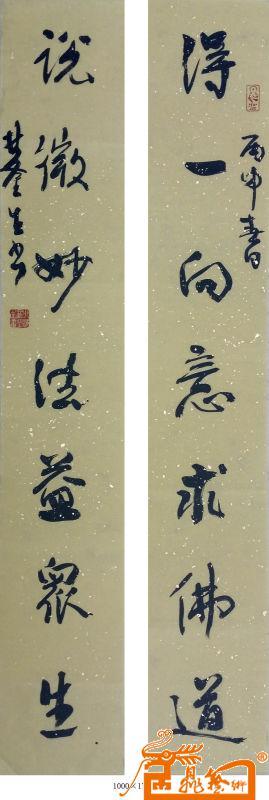 得一向意求佛道
丙申春日
説微妙法益眾生
1000×1